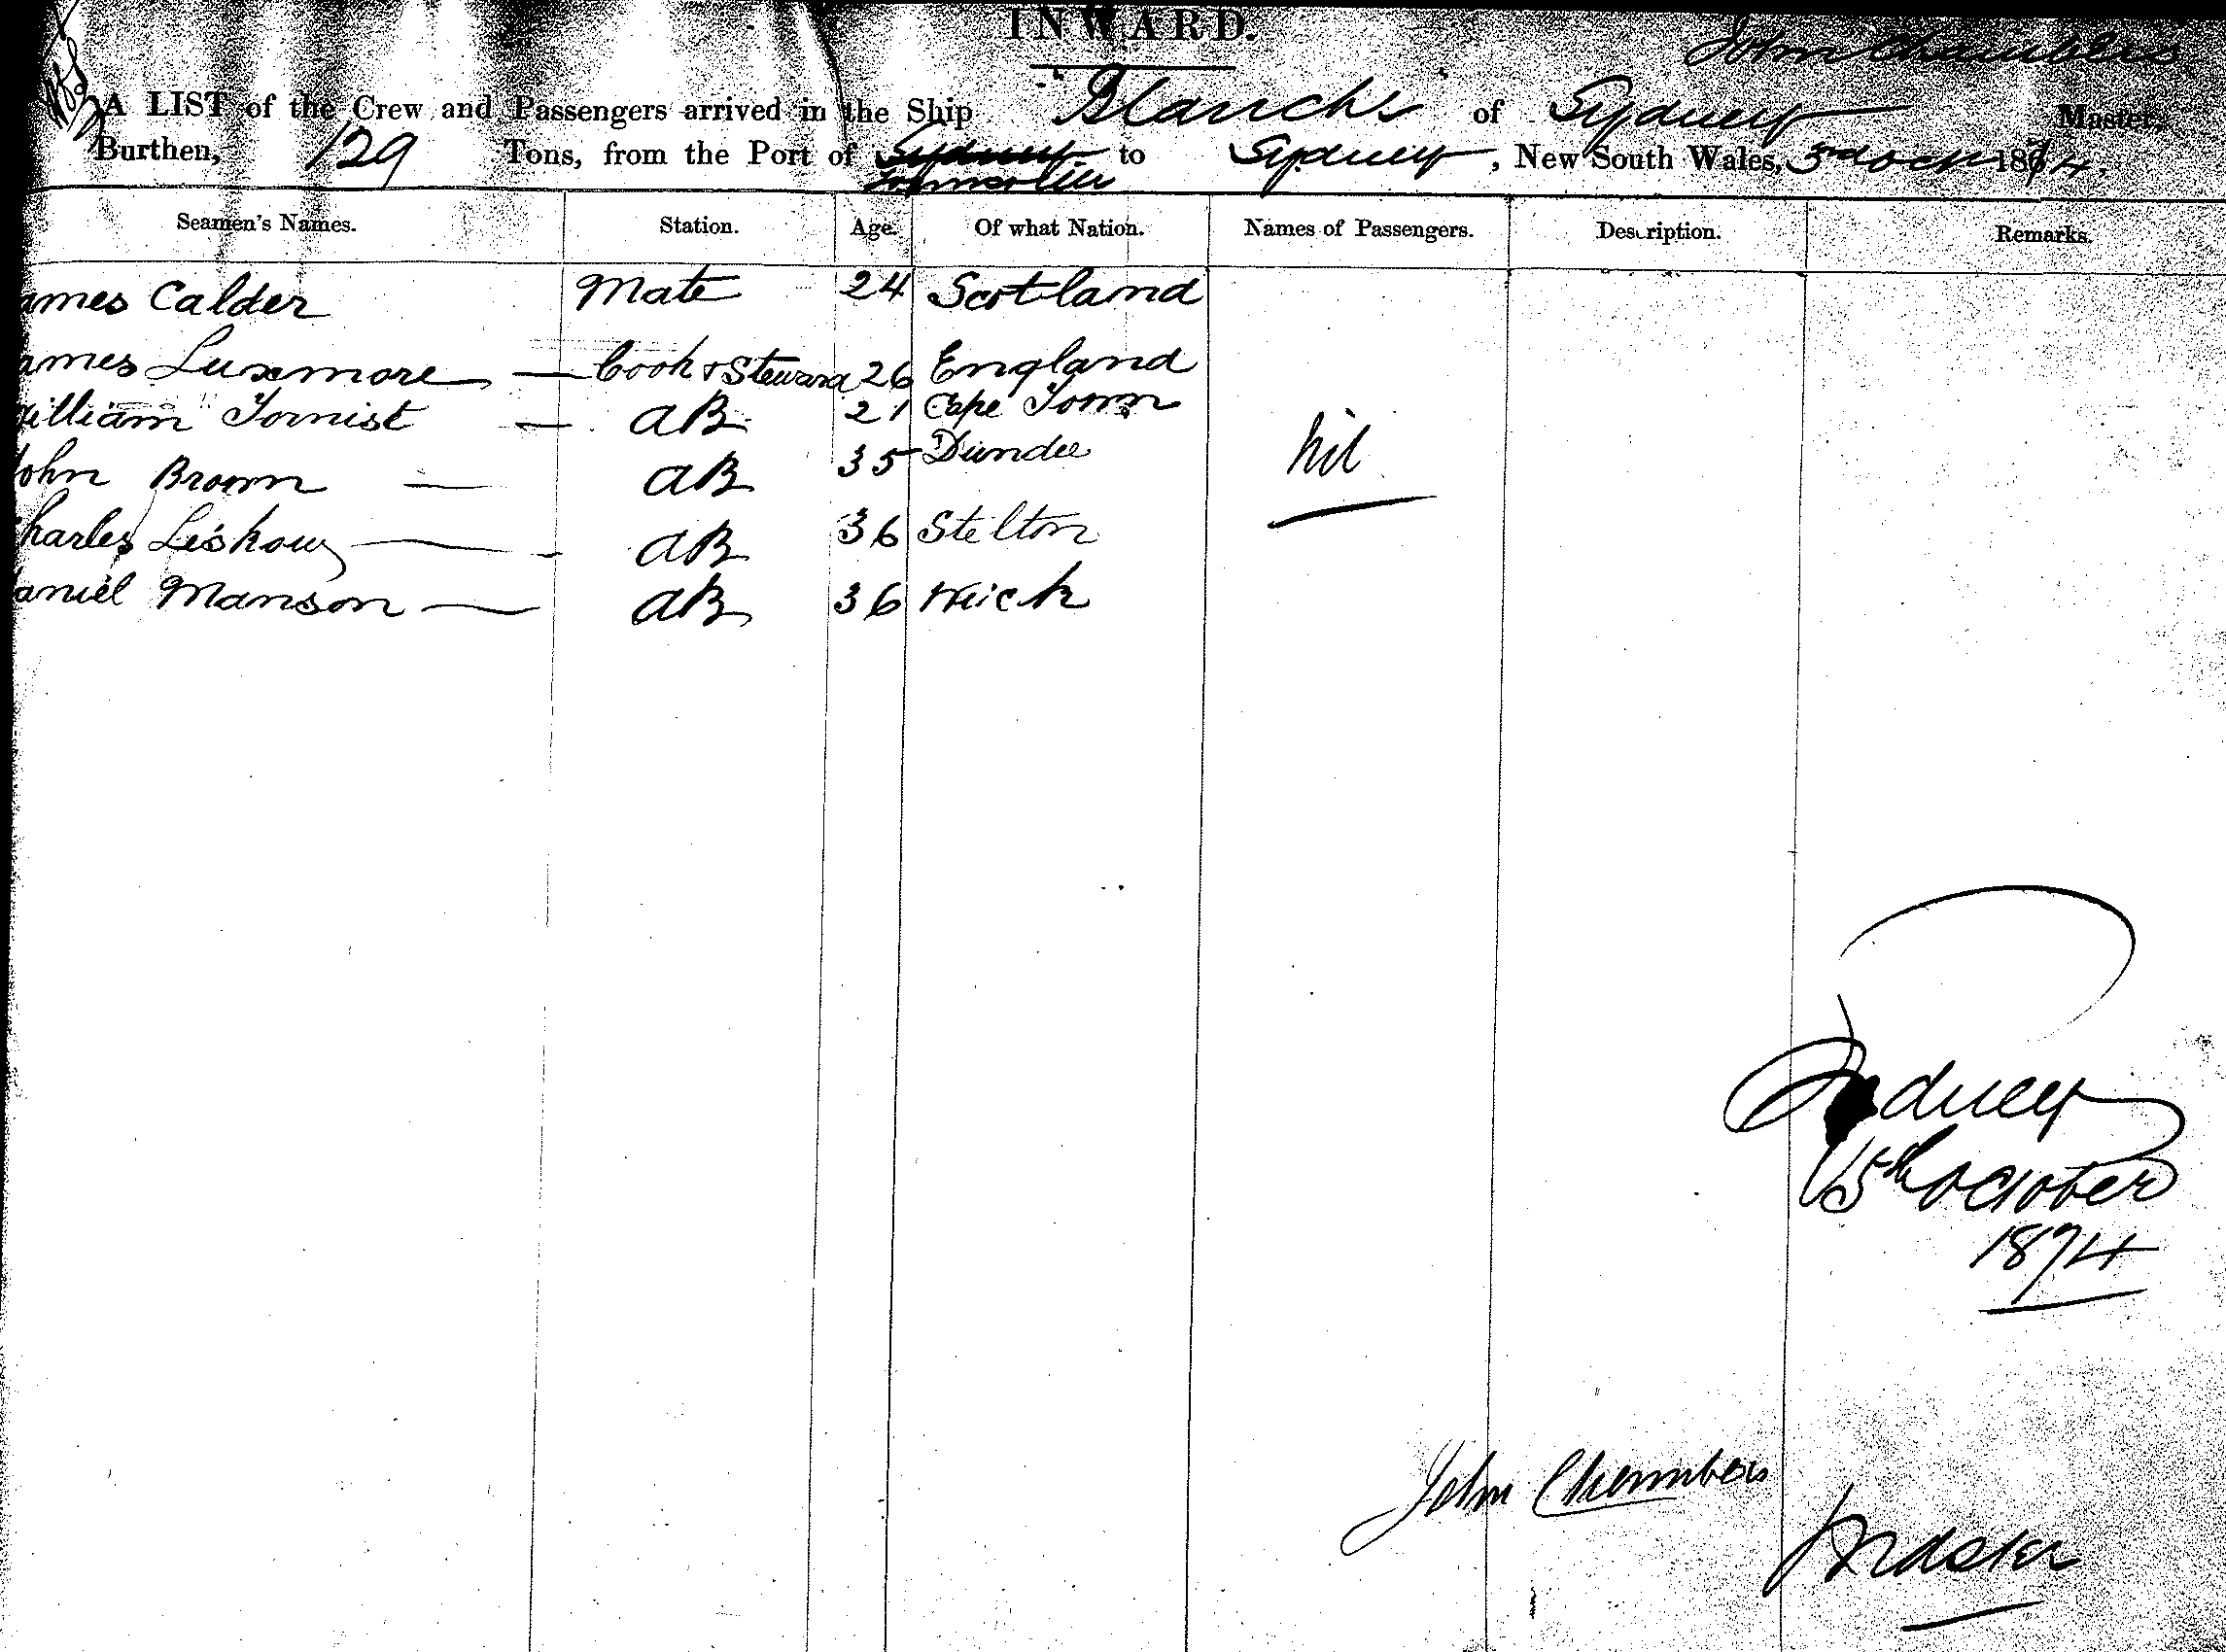 INWARD.
John Chambers
A LIST of the Crew and Passengers arrived in the Ship "Blanche" of Sydney Master,
Burthen, 129 Tons, from the Port of Sydney to Sydney, New South Wales, Oct 1874.
Seamen's Names. Station. Age. Of what Nation. Names of Passengers. Description. Remarks.
ames Calder Mate 24 Scotland
ames Luxmore — Cook & Steward 26 England
illiam — AB 21 Cape Town
ohn Brown — AB 35 Dundee
Nil
harles — AB 36 Stelton
aniel Manson — AB 36 Weick
Sydney
5th October
1874
John Chambers
Master